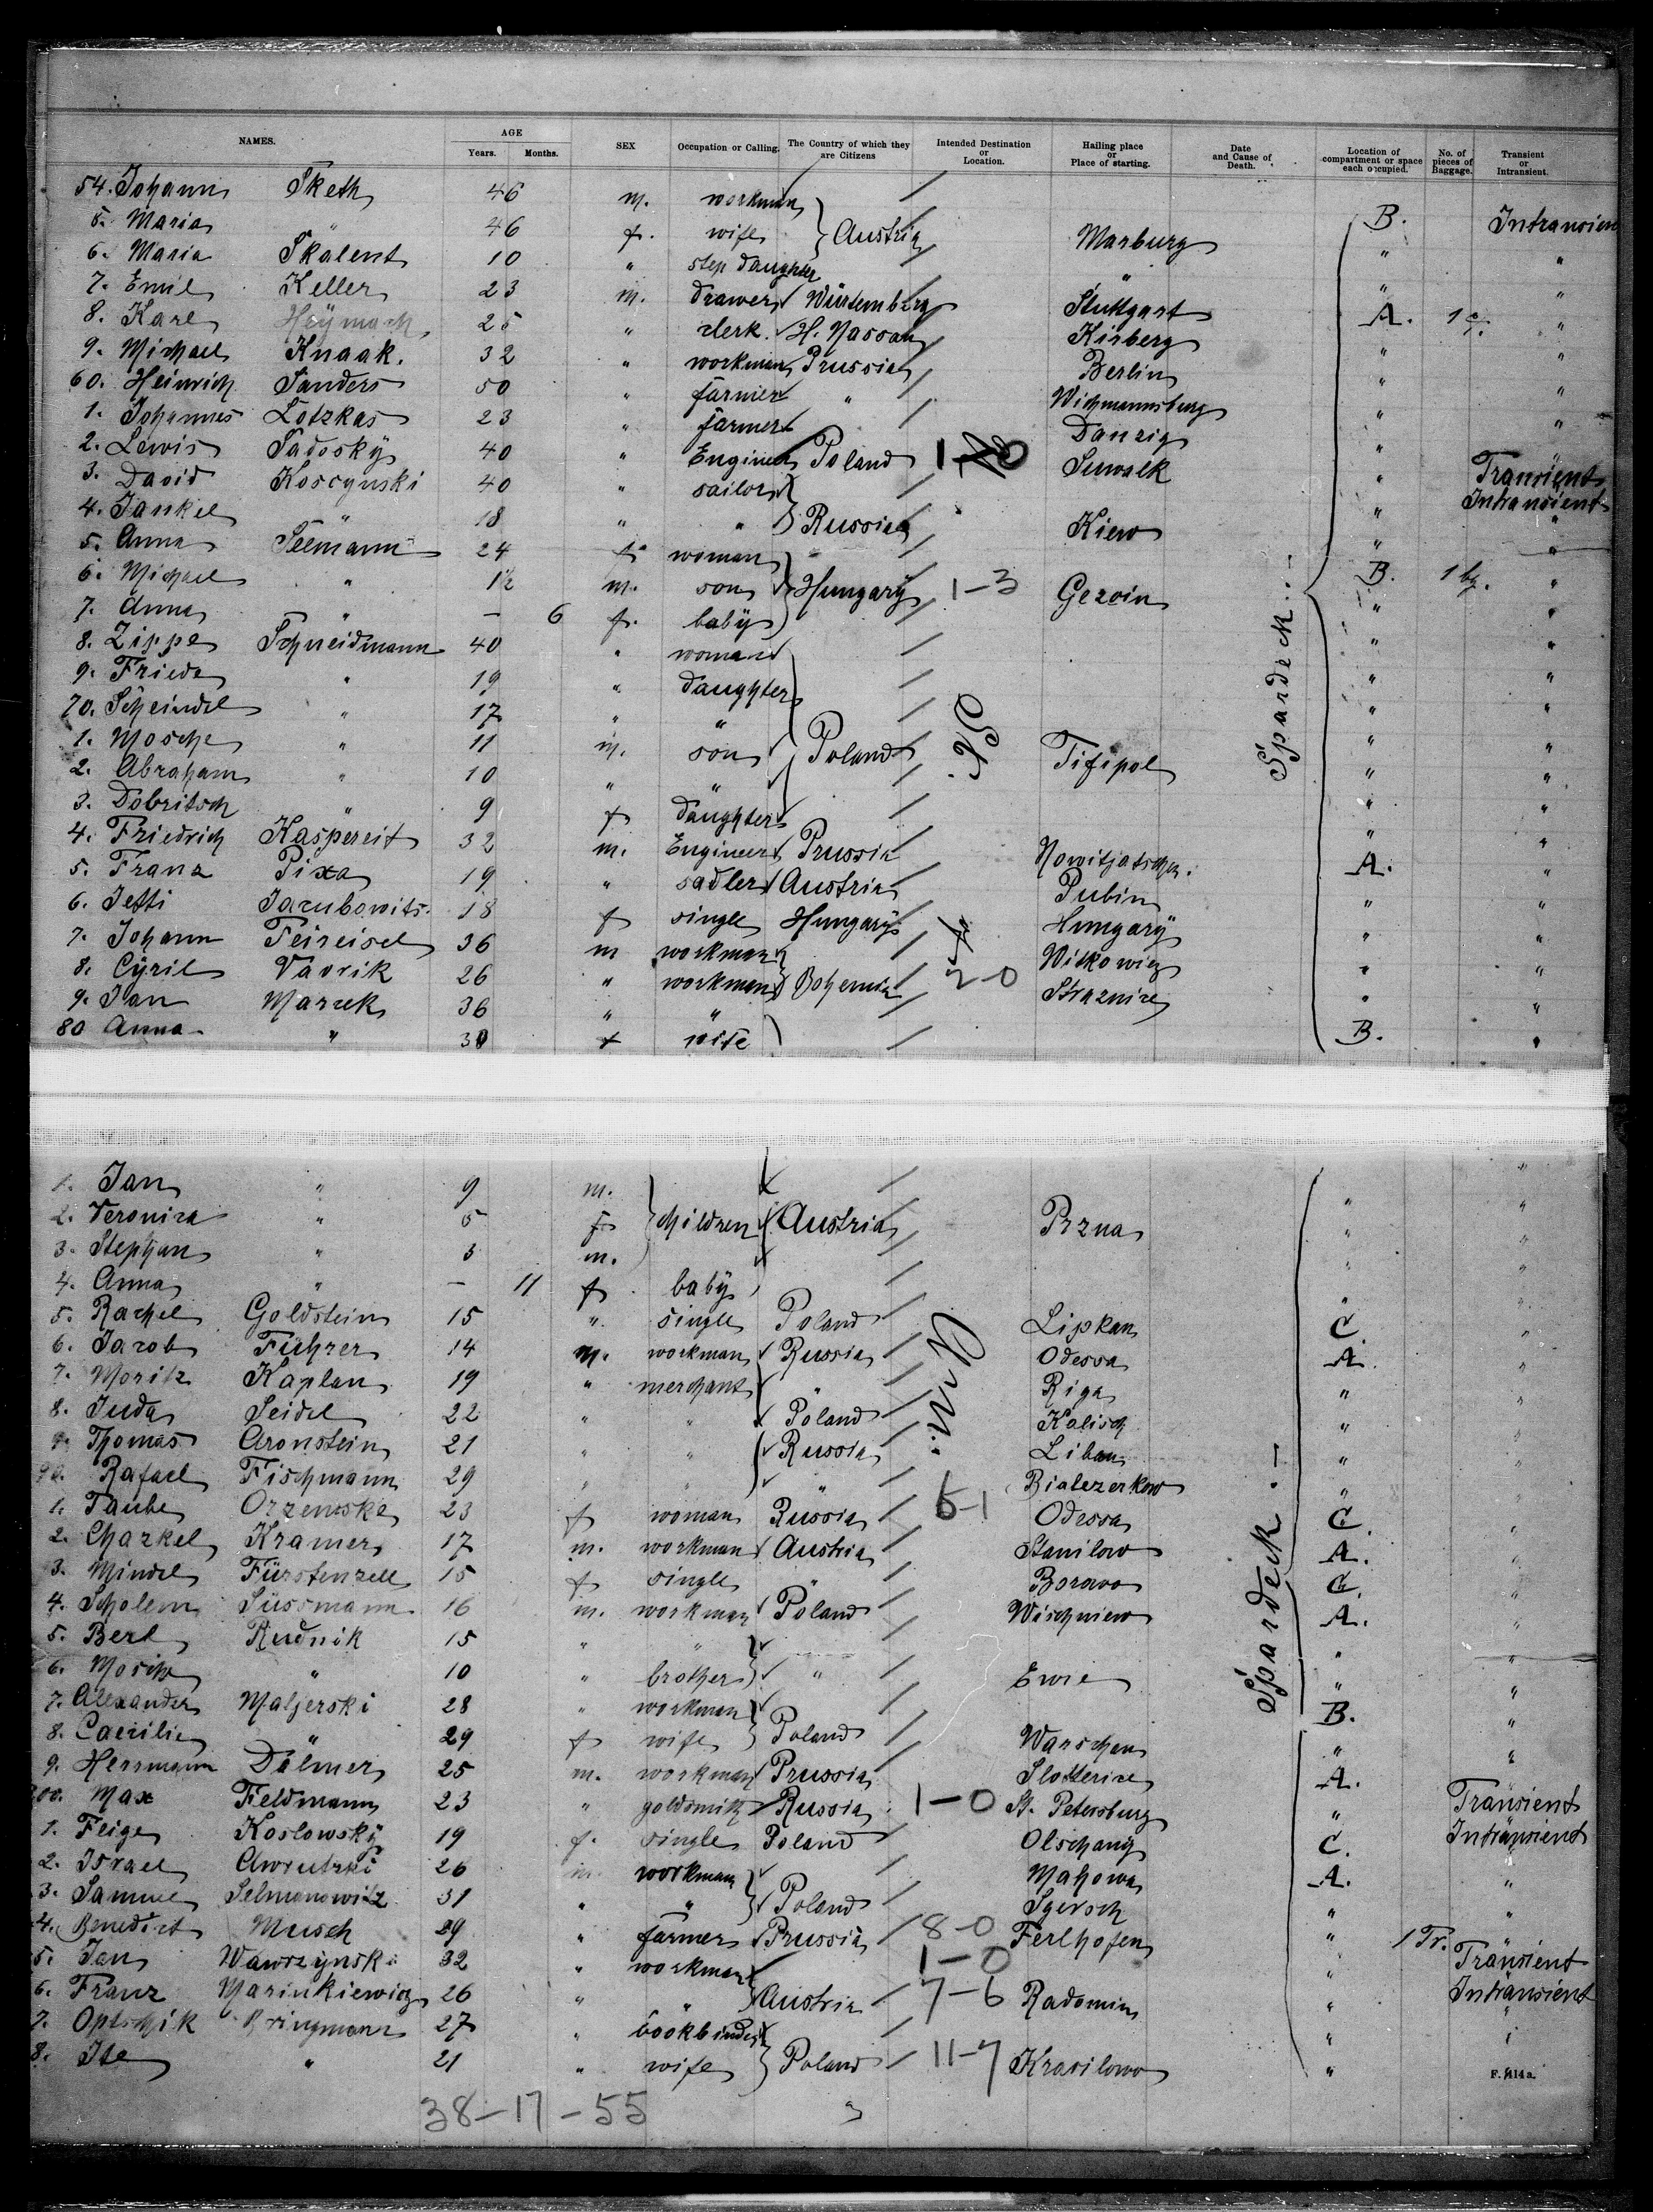 NAMES. AGE SEX Occupation or Calling. The Country of which they are Citizens Intended Destination or Location. Hailing place or Place of starting. Date and Cause of Death. Location of compartment or space each occupied. No. of pieces of Baggage. Transient or Intransient.
Years. Months.
54. Johann Sketh 46 m. workman
5. Maria " 46 f. wife } Austria Marburg B. Intransien
6. Maria Skalent 10 " step daughter " " "
7. Emil Keller 23 m. drawer Würtemberg Stuttgart " "
8. Karl Heymach 25 " clerk. H. Nassau Kirberg A. 1 c/. "
9. Michael Knaak. 32 " workman Prussia Berlin " "
60. Heinrich Sanders 50 " farmer " Wichmannsburg " "
1. Johannes Lotzkas 23 " farmer " Danzig " "
2. Lewis Sadosky 40 " Engineer Poland Suwalk "
3. David Koscynski 40 " sailor " Transient
4. Jankel " 18 " " } Russia Kiew " Intransient
5. Anna Seemann 24 f. woman " "
6. Michael " 1½ m. son } Hungary 1-3 Gezoin B. 1 bg. "
7. Anna " — 6 f. baby " "
8. Zippe Schneidmann 40 " woman " "
9. Friede " 19 " daughter " "
70. Scheindel " 17 " " " "
1. Mosche " 11 m. son Poland Tifipol " "
2. Abraham " 10 " " " "
3. Dobritsch " 9 f daughter " "
4. Friedrich Kaspereit 32 m. Engineer Prussia Nowitjatschen. " "
5. Franz Pixa 19 " sadler Austria Pubin A. "
6. Jetti Jacubowits. 18 f single Hungary Hungary " "
7. Johann Teireisel 36 m workman Witkowiz " "
8. Cyril Vavrik 26 " workman Bohemia 2-0 Straznice " "
9. Jan Marcek 36 " " " "
80 Anna " 30 f wife B. "
Spandeck.-
1. Jan " 9 m. "
2. Veronica " 5 f } children { Austria Przna " "
3. Stephan " 3 m. " "
4. Anna " — 11 f baby " "
5. Rachel Goldstein 15 " single Poland Lipkan C. "
6. Jacob Führer 14 m. workman Russia Odessa A. "
7. Moritz Kaplan 19 " merchant " Riga " "
8. Juda Seidel 22 " " Poland Kalisch " "
9. Thomas Aronstein 21 " " Russia Libau " "
90. Rafael Fischmann 29 " " " Bialezerkow " "
1. Taube Orzewske 23 f woman Russia 5-1 Odessa C. "
2. Chazkel Kramer 17 m. workman Austria Stanilow A. "
3. Mindel Fürstenzell 15 f single " Borowo C. "
4. Scholem Süssmann 16 m. workman Poland Wischniew A. "
5. Berl Rudnik 15 " " " "
6. Mosche " 10 " brother " Ewie " "
7. Alexander Maljerski 28 " workman B. "
8. Caecilie " 29 f wife } Poland Warschau " "
9. Herrmann Dölmer 25 m. workman Prussia Slotterice A. "
300. Max Feldmann 23 " goldsmith Russia 1-0 St. Petersburg " Transient
1. Feige Koslowsky 19 f. single Poland Olschany C. Intransient
2. Israel Awrutzki 26 m. workman Mahowa A. "
3. Samuel Selmonowitz 31 " " } Poland Sgersch " "
4. Benedict Meusch 29 " farmer Prussia 8-0 Ferlhofen " 1 Tr.
5. Jan Wawrzynski 32 " workman 1-0 " Transient
6. Franz Marinkiewicz 26 " " Austria 7-6 Radomin " Intransient
7. Optschik Bringmann 27 " bookbinder " "
8. Ite " 21 " wife } Poland 11-7 Krasilowo "
Spandeck.-
F. 414a.
38-17-55